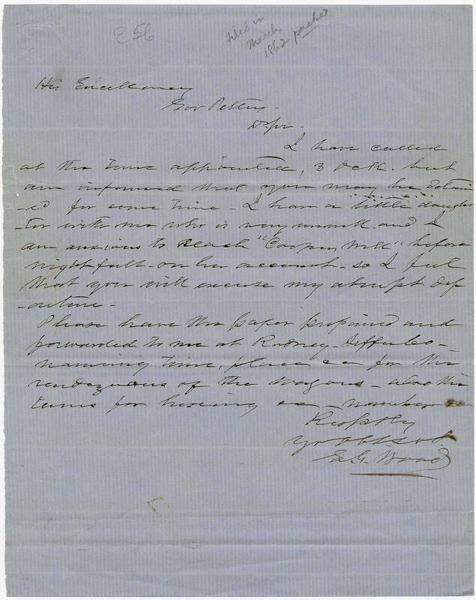 256
Filed in
March
1862 packet
His Excellency
Gov Pettus
D Sir.
I have called
at the time appointed, 3 Ock. but
am informed that you may be detain
ed for some time - I have a little daugh
ter with me who is very unwell and I
am anxious to reach "Coopers Well" before
night fall on her account - so I feel
that you will excuse my abrupt dep
arture -
Please have the paper prepared and
forwarded to me at Rodney Jefferson Co -
naming time, place &c for the
rendezvous of the wagons - also the
terms for hireing &c - number &c
Respctly
Yr Obt Sevt
E. G. Wood